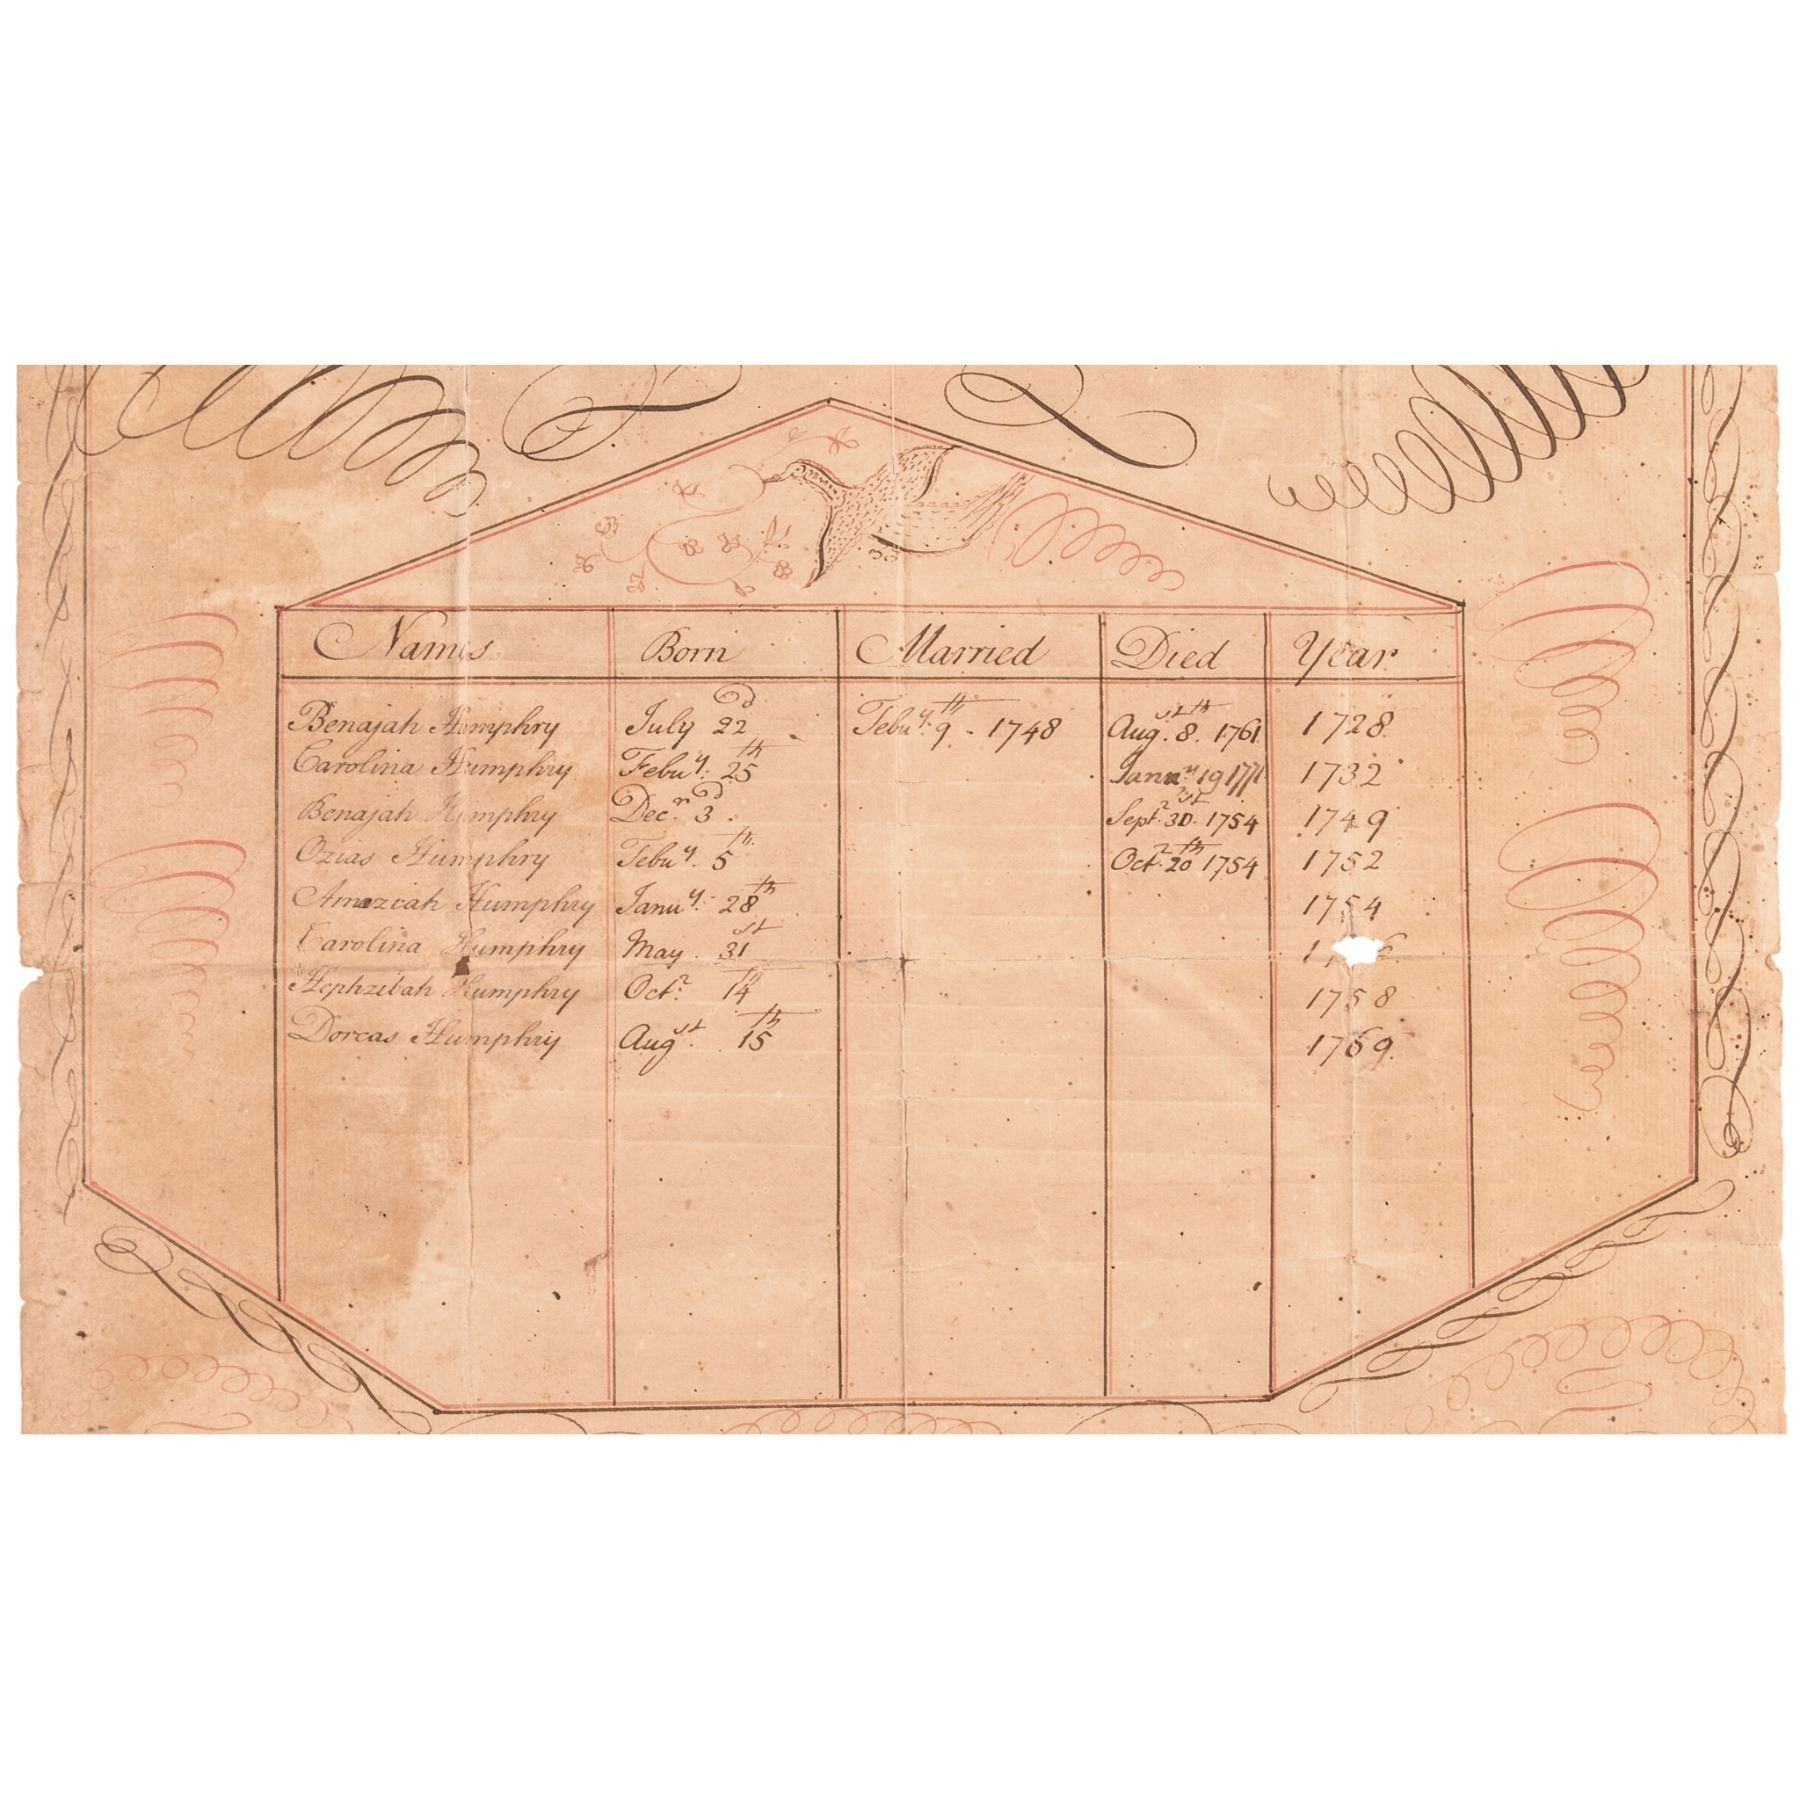 Names Born Married Died Year
Benajah Humphry July 22d Febuy. 9th - 1748 Augst. 8th. 1761 1728.
Carolina Humphry Febuy: 25th Januy. 19 1771 1732
Benajah Humphry Decr. 3d. Septr. 30st. 1754 1749
Ozias Humphry Febuy. 5th. Octr. 20th 1754 1752
Amaziah Humphry Januy: 28th 1754
Carolina Humphry May. 31st
Hephzibah Humphry Octr: 14th 1758
Dorcas Humphry Augst. 15th